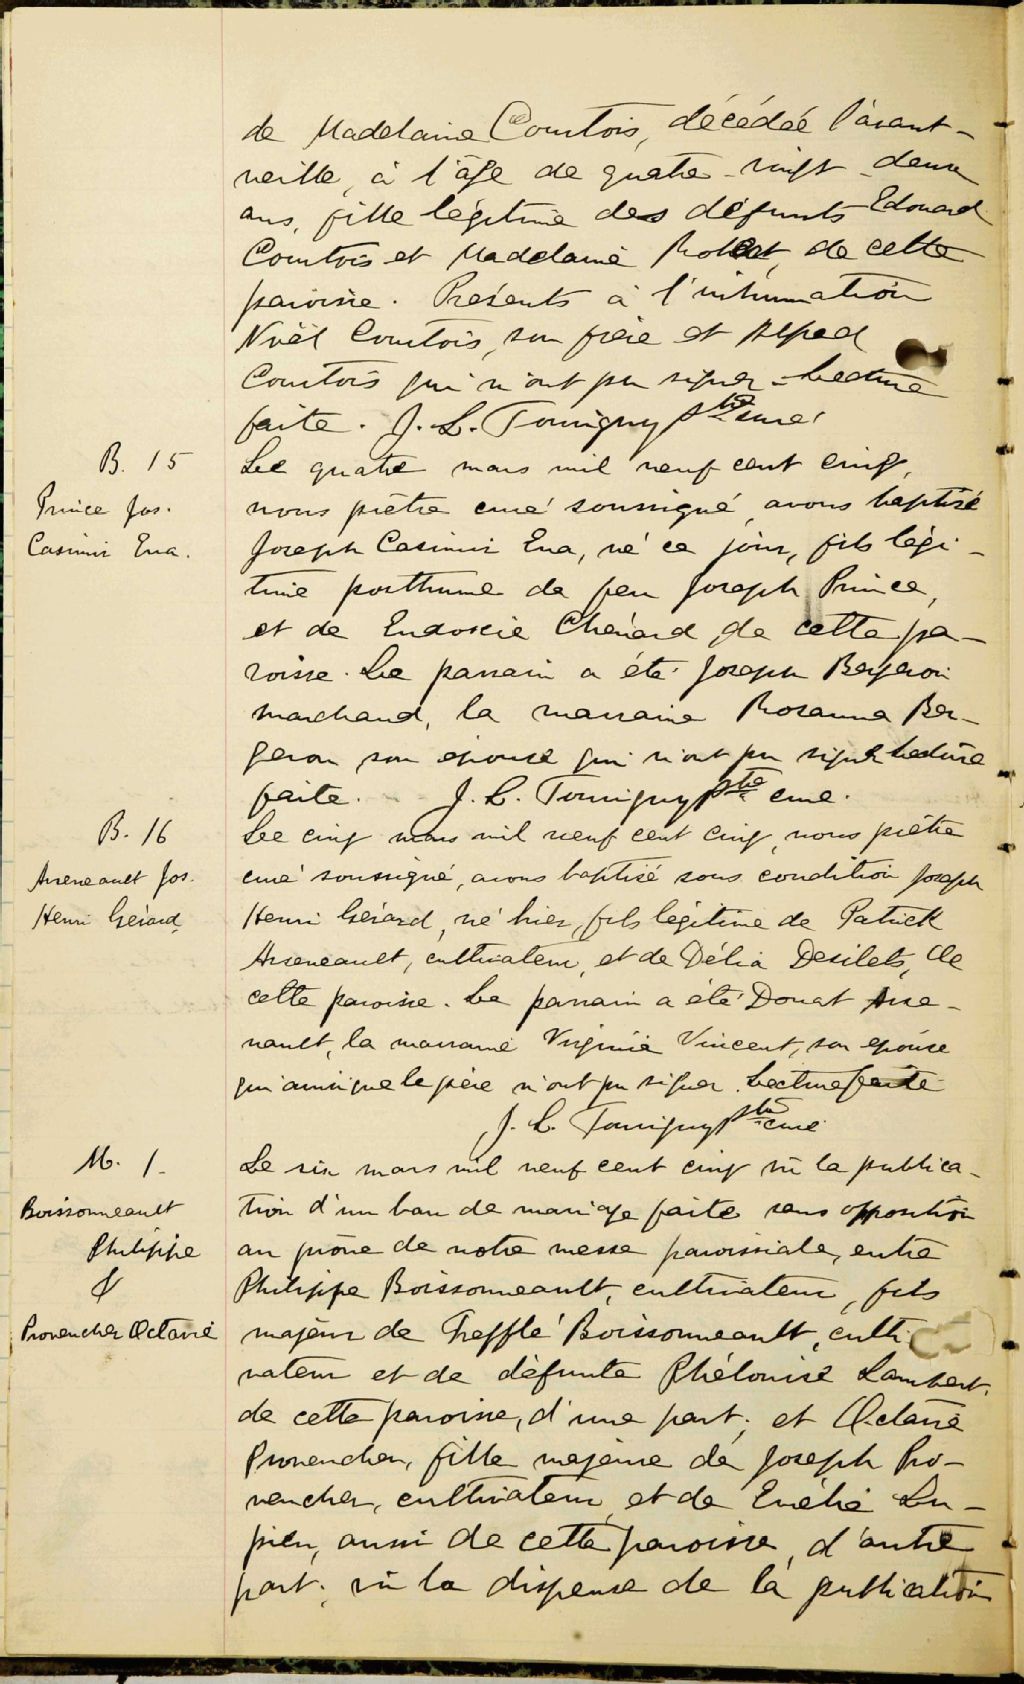 de Madelaine Courtois, décédée l'avant-
veille, à l'âge de quatre-vingt-deux
ans, fille légitime des défunts Edouard
Courtois et Madelaine de cette
paroisse. Présents à l'inhumation
Noël Courtois, son frère et Alfred
Courtois qui n'ont pu signer. Lecture
faite. J. L. Tourigny Ptre curé
B. 15
Prince Jos.
Casimir Ena.
Le quatre mars mil neuf cent cinq,
nous prêtre curé soussigné, avons baptisé
Joseph Casimir Ena, né ce jour, fils légi-
time posthume de feu Joseph Prince,
et de Eudoxie Chénard, de cette pa-
roisse. Le parrain a été Joseph Bergeron
marchand, la marraine Rosanna Ber-
geron son épouse qui n'ont pu signer Lecture
faite. J. L. Tourigny Ptre curé.
B. 16
Arseneault Jos.
Henri Gérard
Le cinq mars mil neuf cent cinq, nous prêtre
curé soussigné, avons baptisé sous condition Joseph
Henri Gérard, né hier, fils légitime de Patrick
Arseneault, cultivateur, et de Délia Desilets, de
cette paroisse. Le parrain a été Donat Arse-
nault, la marraine Virginie Vincent, son épouse
qui ainsi que le père n'ont pu signer. Lecture faite
J. L. Tourigny Ptre curé
M. 1.
Boissonneault
Philippe
&
Provencher Octavie
Le six mars mil neuf cent cinq vu la publica-
tion d'un ban de mariage faite sans opposition
au prône de notre messe paroissiale, entre
Philippe Boissonneault, cultivateur, fils
majeur de Trefflé Boissonneault, culti
vateur et de défunte Phélonise Lambert,
de cette paroisse, d'une part; et Octavie
Provencher, fille majeure de Joseph Pro-
vencher, cultivateur, et de Exélie Lu-
pien, aussi de cette paroisse, d'autre
part; vu la dispense de la publication